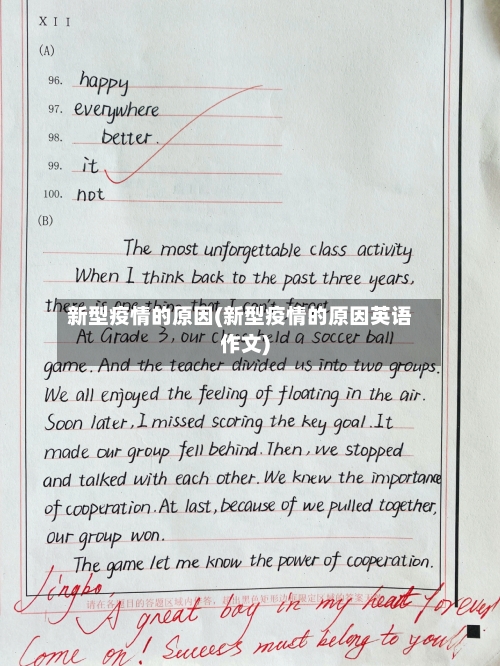 XII
(A)
96. happy
97. everywhere
98. better.
99. it
100. not
(B)
The most unforgettable class activity
When I think back to the past three years,
there is one thing that I can't forget
新型疫情的原因(新型疫情的原因英语
作文)
At Grade 3, our class held a soccer ball
game. And the teacher divided us into two groups.
We all enjoyed the feeling of floating in the air.
Soon later, I missed scoring the key goal. It
made our group fell behind. Then, we stopped
and talked with each other. We knew the importance
of cooperation. At last, because of we pulled together,
our group won.
The game let me know the power of cooperation.
请在各题目的答题区域内作答，超出黑色矩形边框限定区域的答案
Jingbo,
A great boy in my heart forever!
Come on! Success must belong to you!